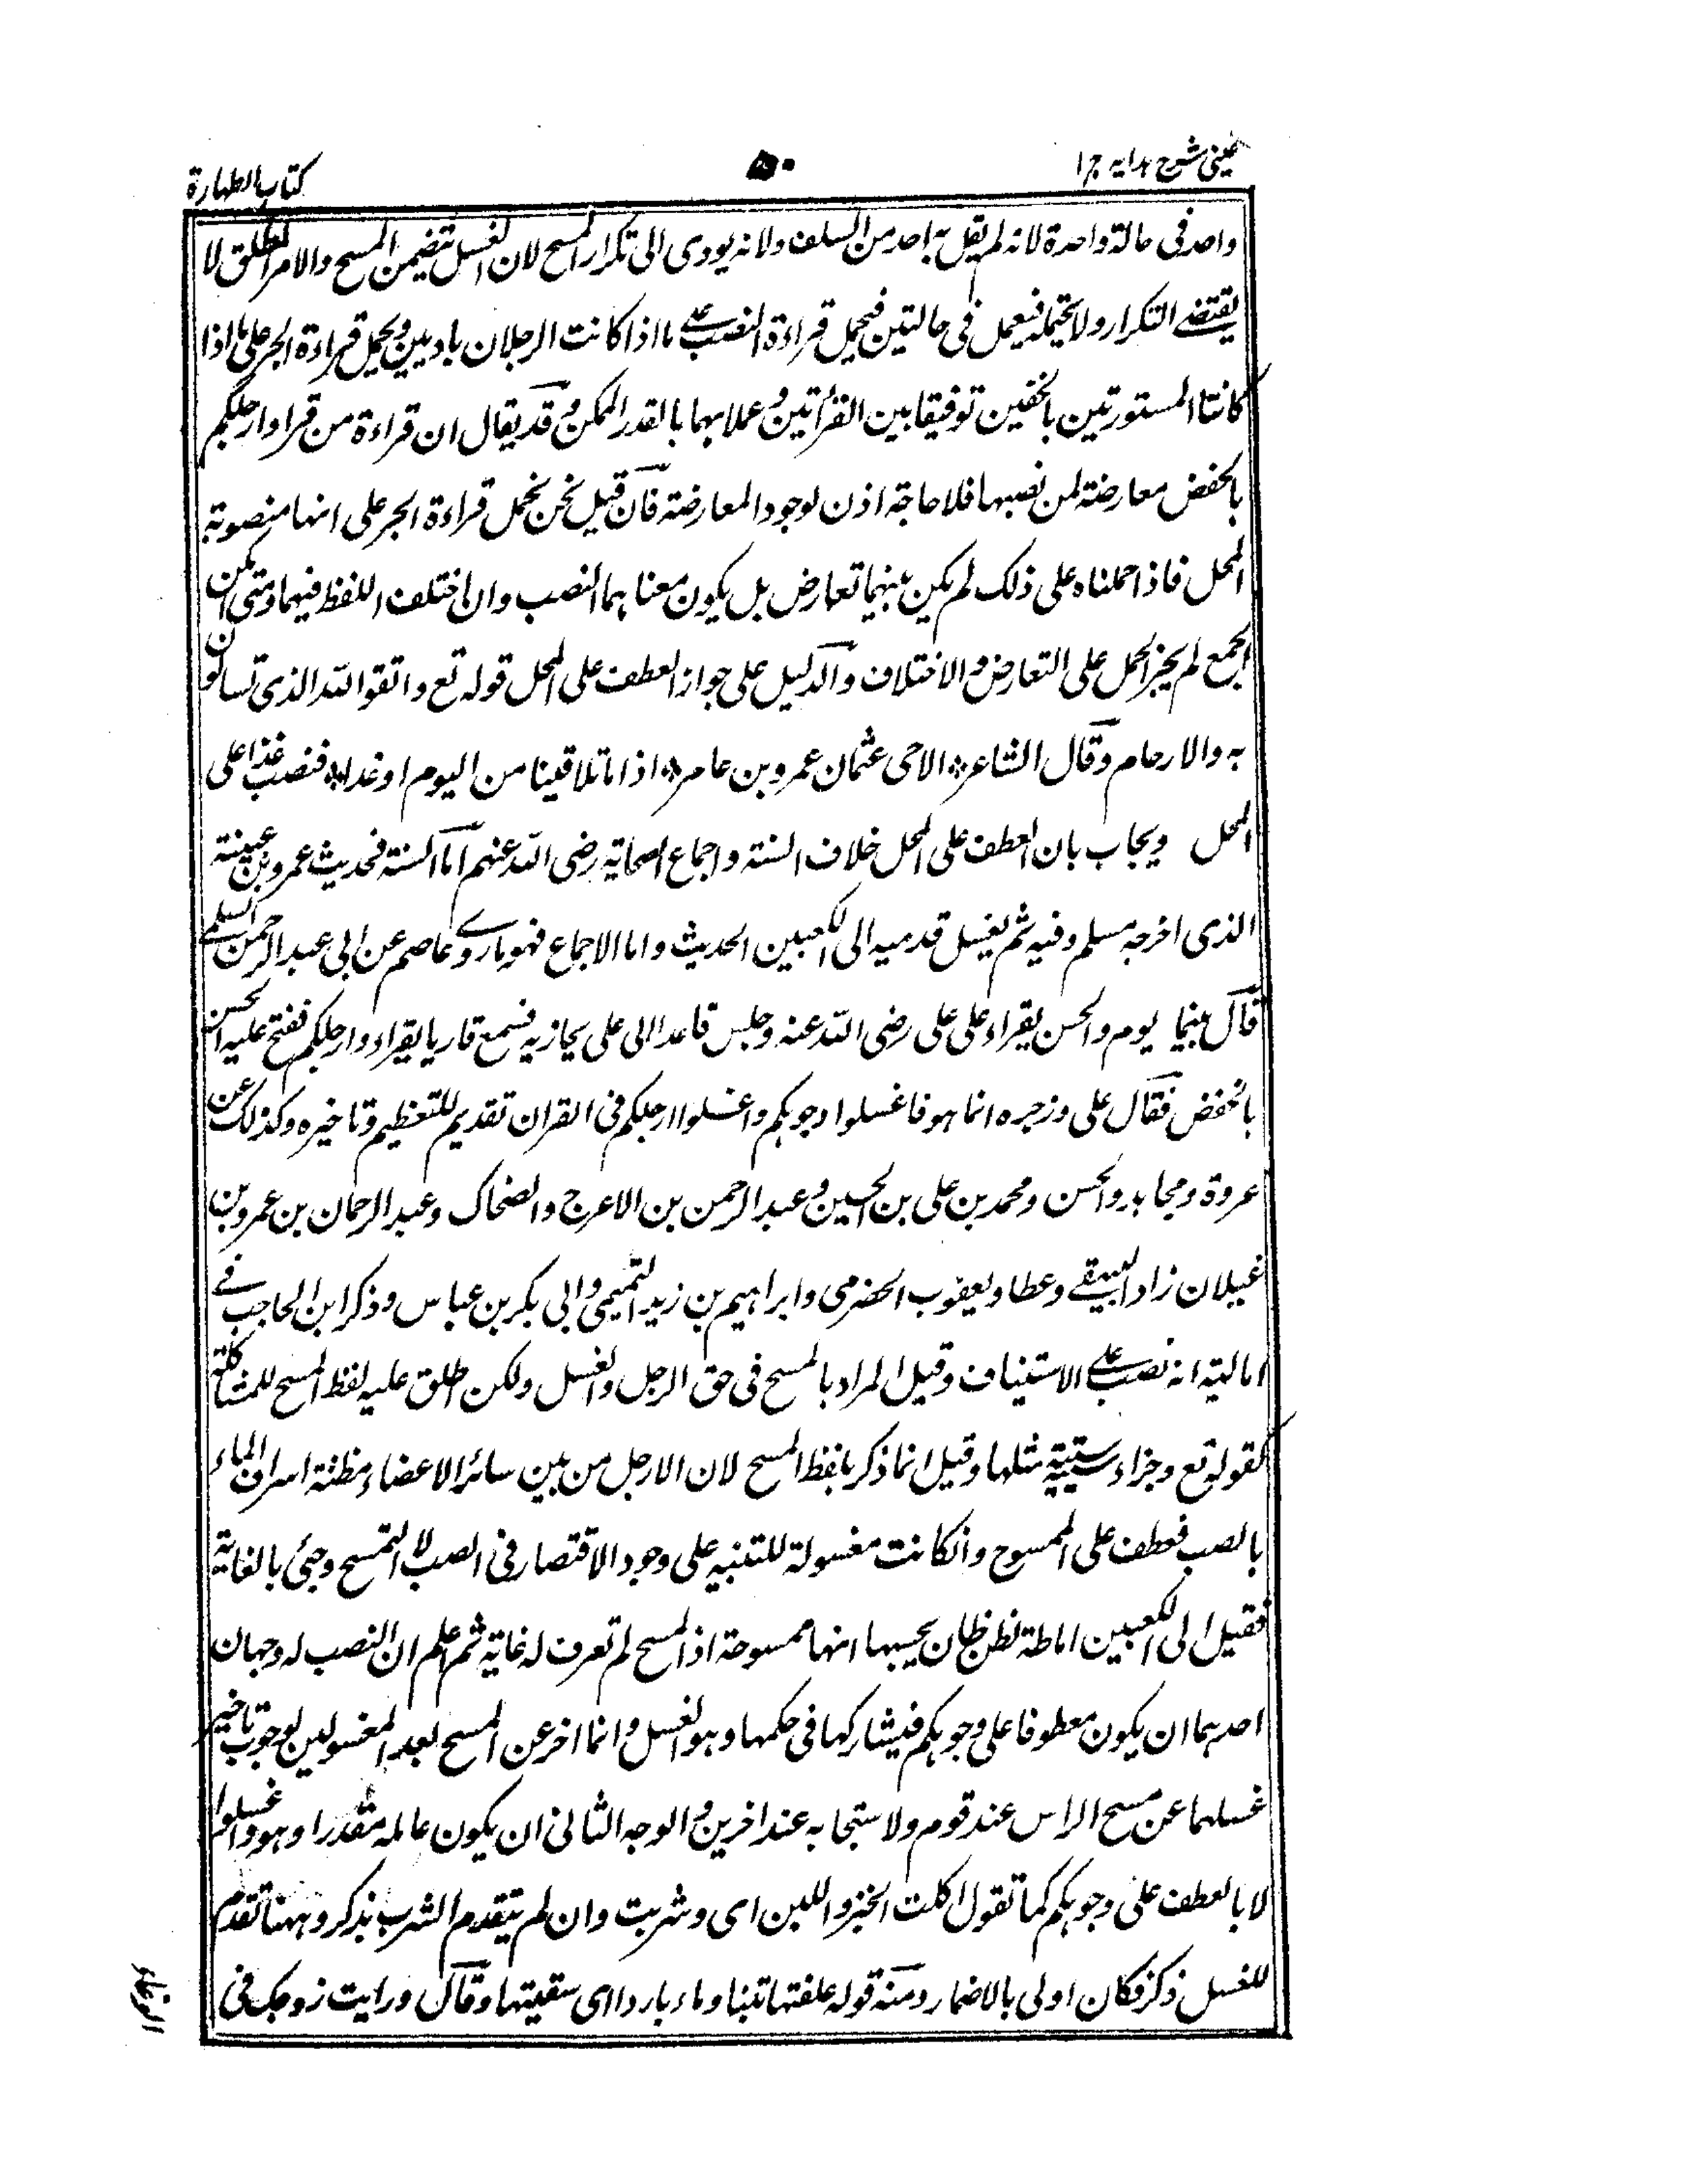 عینی شرح ہدایہ ج۱
۵۰
کتاب الطہارۃ
واحد فی حالۃ واحدۃ لانہ لم یقل بہ احد من السلف ولانہ یودی الی تکرار المسح لان الغسل یتضمن المسح والامر المطلق لا
یقتضے التکرار ولا یحتملہ فیعمل فی حالتین فیحمل قراءۃ النصب علے ما اذا کانت الرجلان بادیین ویحمل قراءۃ الجر علی ما اذا
کانتا المستورتین بالخفین توفیقا بین القرأتین وعملا بہما بالقدر الممکن وقد یقال ان قراءۃ من قرا وارجلکم
بالخفض معارضۃ لمن نصبہا فلا حاجۃ اذن لوجود المعارضۃ فان قیل نحن نحمل قراءۃ الجر علی انہا منصوبۃ
المحل فاذا حملناہ علی ذلک لم یکن بینہما تعارض بل یکون معناہما النصب وان اختلف اللفظ فیہما ومتی امکن
الجمع لم یجز الحمل علی التعارض والاختلاف والدلیل علی جواز العطف علی المحل قولہ تع واتقوا اللہ الذی تسالون
بہ والارحام وقال الشاعر الاحی عثمان عمرو بن عامر اذا ما تلاقینا من الیوم او غدا فنصب غدا علی
المحل ویجاب بان العطف علی المحل خلاف السنۃ واجماع الصحابۃ رضی اللہ عنہم اما السنۃ فحدیث عمرو بن عبینۃ
الذی اخرجہ مسلم وفیہ ثم یغسل قدمیہ الی الکعبین الحدیث واما الاجماع فہو ما روے عاصم عن ابی عبد الرحمن السلمے
قال بینما یوم والحسن یقراء علی علی رضی اللہ عنہ وجلس قاعدا الی علی یحازیہ فسمع قاریا یقراء وارجلکم ففتح علیہ الحسن
بالخفض فقال علی وزجرہ انما ہو فاغسلوا وجوہکم واغسلوا ارجلکم فی القران تقدیم للتعظیم وتاخیرہ وکذلک عن
عروۃ ومجاہد والحسن ومحمد بن علی بن الحسین وعبد الرحمن بن الاعرج والضحاک وعبد الرحمان بن عمرو بن
غیلان زاد البیہقے وعطا ویعقوب الحضرمی وابراہیم بن زید التمیمی وابی بکر بن عباس وذکر ابن الحاجب فے
امالیۃ انہ نصب علے الاستیناف وقیل المراد بالمسح فی حق الرجل والغسل ولکن اطلق علیہ لفظ المسح للمشاکلۃ
کقولہ تع وجزاء سیئۃ مثلہا وقیل انما ذکر بلفظ المسح لان الارجل من بین سائر الاعضاء مظنۃ اسراف الماء
بالصب فعطف علی الممسوح وانکانت مغسولۃ للتنبیہ علی وجود الاقتصار فی الصب لا التمسح وجئ بالغایۃ
فقیل الی الکعبین اماطۃ لظن ظان یحسبہا انہا ممسوحۃ اذ المسح لم تعرف لہ غایۃ ثم اعلم ان النصب لہ وجہان
احدہما ان یکون معطوفا علی وجوہکم فیشارکہا فی حکمہا وہو الغسل وانما اخر عن المسح بعد المغسولین لوجوب تاخیر
غسلہما عن مسح الراس عند قوم ولاستحبابہ عند اخرین والوجہ الثانی ان یکون عاملہ مقدرا وہو واغسلوا
لا بالعطف علی وجوہکم کما تقول اکلت الخبز واللبن ای وشربت وان لم یتقدم الشرب بذکر وہہنا تقدم
للغسل ذکر فکان اولی بالاضمار ومنہ قولہ علفتہا تبنا وماء باردا ای سقیتہا وقال ورایت زوجک فی
الوغاء